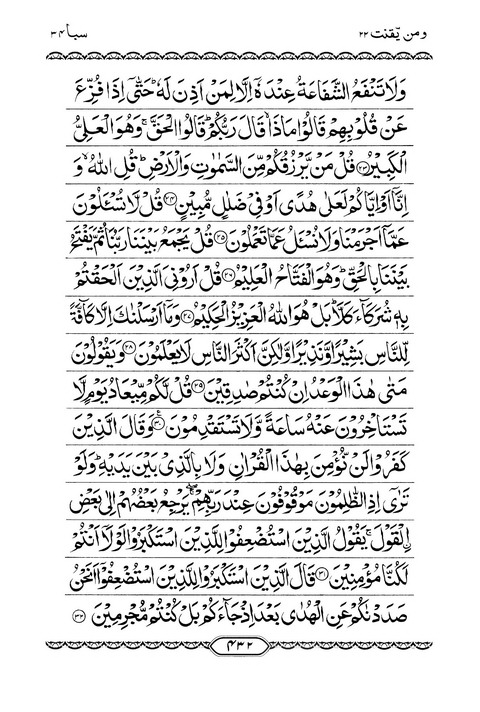 ومن يّقنت ۲۲ سبا ۳۴
وَلَا تَنْفَعُ الشَّفَاعَةُ عِنْدَهٗٓ اِلَّا لِمَنْ اَذِنَ لَهٗ ؕ حَتّٰۤى اِذَا فُزِّعَ
عَنْ قُلُوْبِهِمْ قَالُوْا مَاذَا ۙ قَالَ رَبُّكُمْ ؕ قَالُوا الْحَقَّ ۚ وَهُوَ الْعَلِىُّ
الْكَبِيْرُ ﴿۲۳﴾ قُلْ مَنْ يَّرْزُقُكُمْ مِّنَ السَّمٰوٰتِ وَالْاَرْضِ ؕ قُلِ اللّٰهُ ۙ وَ
اِنَّاۤ اَوْ اِيَّاكُمْ لَعَلٰى هُدًى اَوْ فِىْ ضَلٰلٍ مُّبِيْنٍ ﴿۲۴﴾ قُلْ لَّا تُسْئَلُوْنَ
عَمَّاۤ اَجْرَمْنَا وَلَا نُسْئَلُ عَمَّا تَعْمَلُوْنَ ﴿۲۵﴾ قُلْ يَجْمَعُ بَيْنَنَا رَبُّنَا ثُمَّ يَفْتَحُ
بَيْنَنَا بِالْحَقِّ ؕ وَهُوَ الْفَتَّاحُ الْعَلِيْمُ ﴿۲۶﴾ قُلْ اَرُوْنِىَ الَّذِيْنَ اَلْحَقْتُمْ
بِهٖ شُرَكَآءَ كَلَّا ؕ بَلْ هُوَ اللّٰهُ الْعَزِيْزُ الْحَكِيْمُ ﴿۲۷﴾ وَمَاۤ اَرْسَلْنٰكَ اِلَّا كَآفَّةً
لِّلنَّاسِ بَشِيْرًا وَّنَذِيْرًا وَّلٰكِنَّ اَكْثَرَ النَّاسِ لَا يَعْلَمُوْنَ ﴿۲۸﴾ وَيَقُوْلُوْنَ
مَتٰى هٰذَا الْوَعْدُ اِنْ كُنْتُمْ صٰدِقِيْنَ ﴿۲۹﴾ قُلْ لَّكُمْ مِّيْعَادُ يَوْمٍ لَّا
تَسْتَاْخِرُوْنَ عَنْهُ سَاعَةً وَّلَا تَسْتَقْدِمُوْنَ ﴿۳۰﴾ وَقَالَ الَّذِيْنَ
كَفَرُوْا لَنْ نُّؤْمِنَ بِهٰذَا الْقُرْاٰنِ وَلَا بِالَّذِىْ بَيْنَ يَدَيْهِ ؕ وَلَوْ
تَرٰٓى اِذِ الظّٰلِمُوْنَ مَوْقُوْفُوْنَ عِنْدَ رَبِّهِمْ ۖۚ يَرْجِعُ بَعْضُهُمْ اِلٰى بَعْضِ
اِ۟لْقَوْلَ ۚ يَقُوْلُ الَّذِيْنَ اسْتُضْعِفُوْا لِلَّذِيْنَ اسْتَكْبَرُوْا لَوْلَاۤ اَنْتُمْ
لَكُنَّا مُؤْمِنِيْنَ ﴿۳۱﴾ قَالَ الَّذِيْنَ اسْتَكْبَرُوْا لِلَّذِيْنَ اسْتُضْعِفُوْۤا اَنَحْنُ
صَدَدْنٰكُمْ عَنِ الْهُدٰى بَعْدَ اِذْ جَآءَكُمْ بَلْ كُنْتُمْ مُّجْرِمِيْنَ ﴿۳۲﴾
۴۳۲